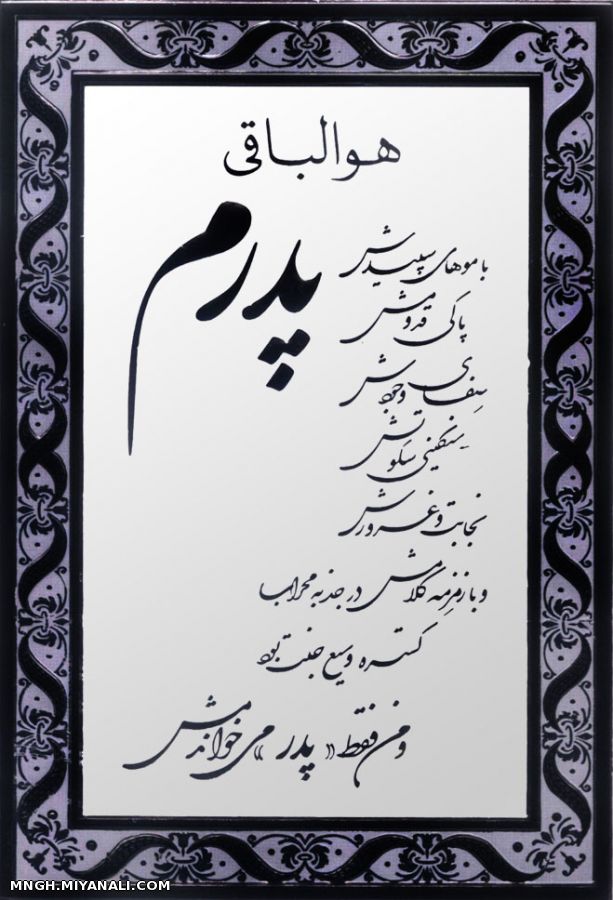 هوالباقی
پدرم
با موهای سپیدش
پاکی قدومش
صفای وجودش
سنگینی سکوتش
نجابت و غرورش
و با زمزمه کلامش در جذبه محراب
گستره وسیع جنت بود
و من فقط « پدر » می خواندمش
MNGH.MIYANALI.COM